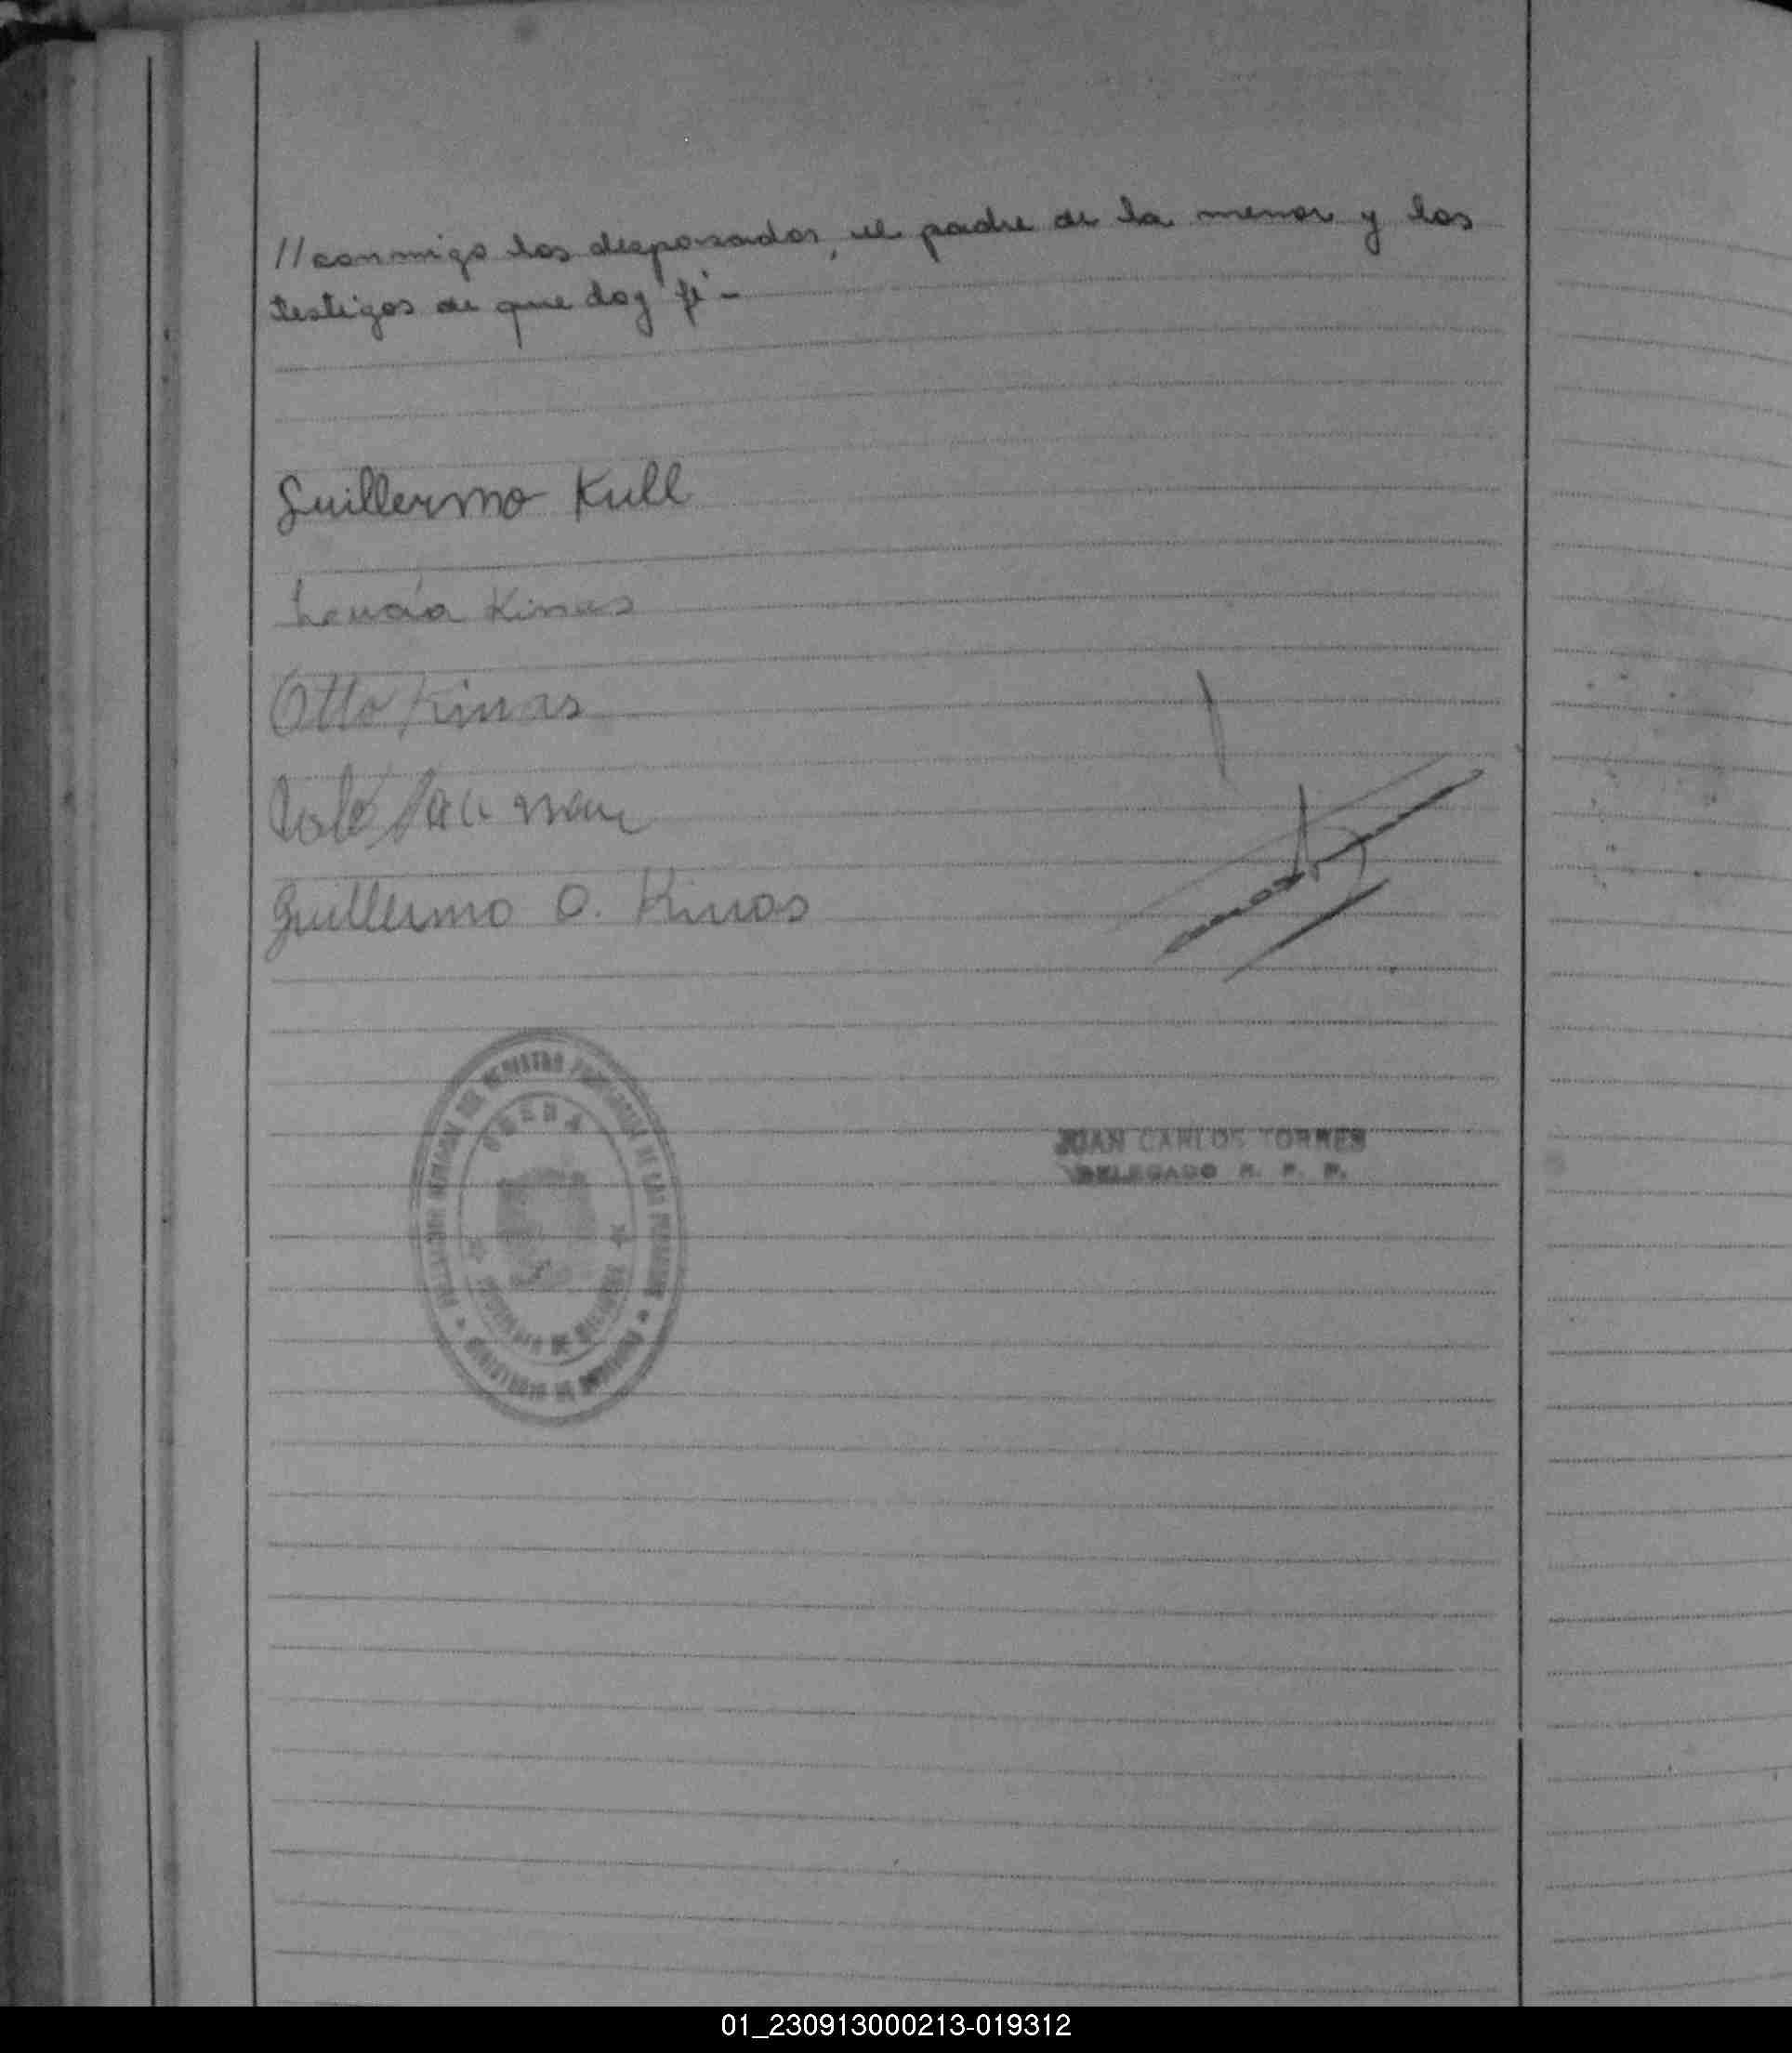 //conmigo los desposados, el padre de la menor y los
testigos de que doy fé -
Guillermo Kull
Kinas
Otto Kinas
Guillermo O. Kinas
REGISTRO PROVINCIAL DE LAS PERSONAS
OBERA
PROVINCIA DE MISIONES
JUAN CARLOS TORRES
DELEGADO R. P. P.
01_230913000213-019312